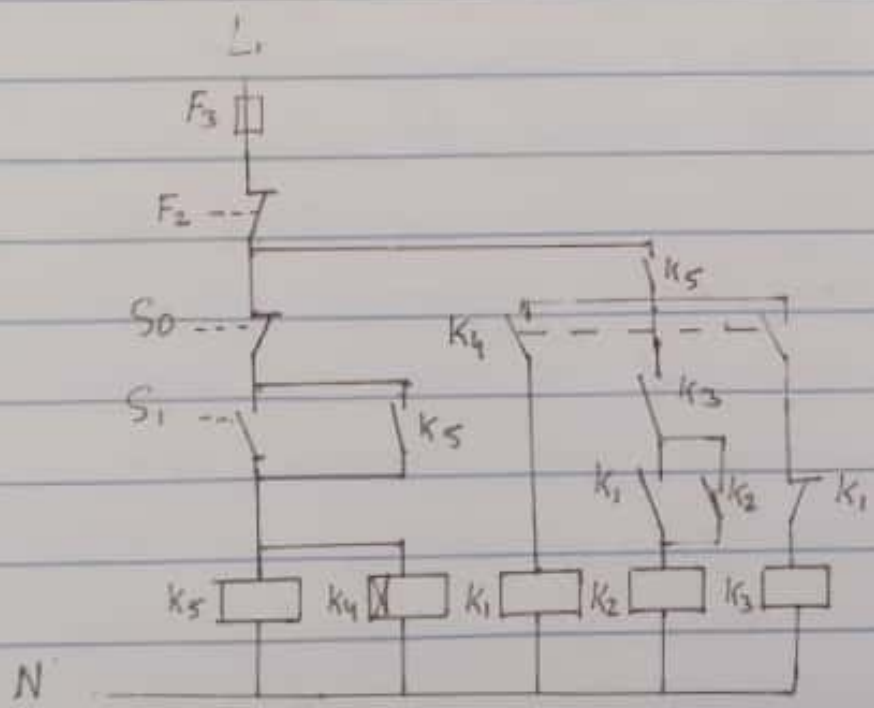 L1
F3
F2
K5
S0
K4
S1
K5
K3
K1
K2
K1
K5
K4
K1
K2
K3
N